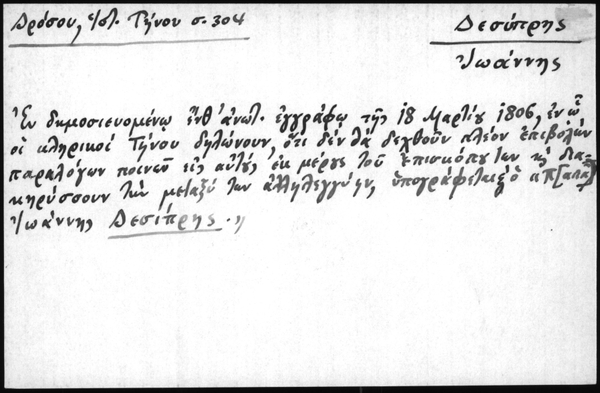 Δρόσου, Ἱστ. Τήνου σ. 304
Δεσύπρης
Ἰωάννης
Ἐν δημοσιευομένῳ ἔνθ' ἀνωτ. ἐγγράφῳ τῆς 18 Μαρτίου 1806, ἐν ᾧ
οἱ κληρικοί Τήνου δηλώνουν, ὅτι δέν θά δεχθοῦν πλέον ἐπιβολήν
παραλόγων ποινῶν εἰς αὐτούς ἐκ μέρους τοῦ ἐπισκόπου των κ' δια-
κηρύσσουν τήν μεταξύ των ἀλληλεγγύην, ὑπογράφεται κ' ὁ
Ἰωάννης Δεσίπρης.